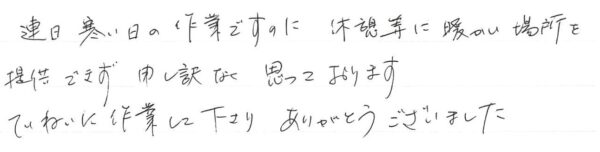 連日寒い日の作業ですのに 休憩等に暖かい場所を
提供できず 申し訳なく 思っております
ていねいに作業して下さり ありがとうございました